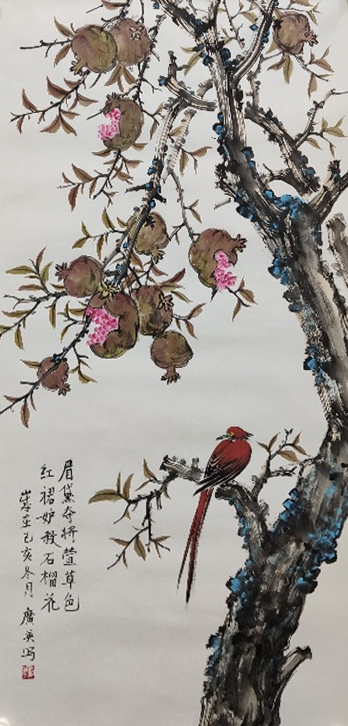 眉黛夺将萱草色
红裙妒杀石榴花
岁在己亥冬月 广英写